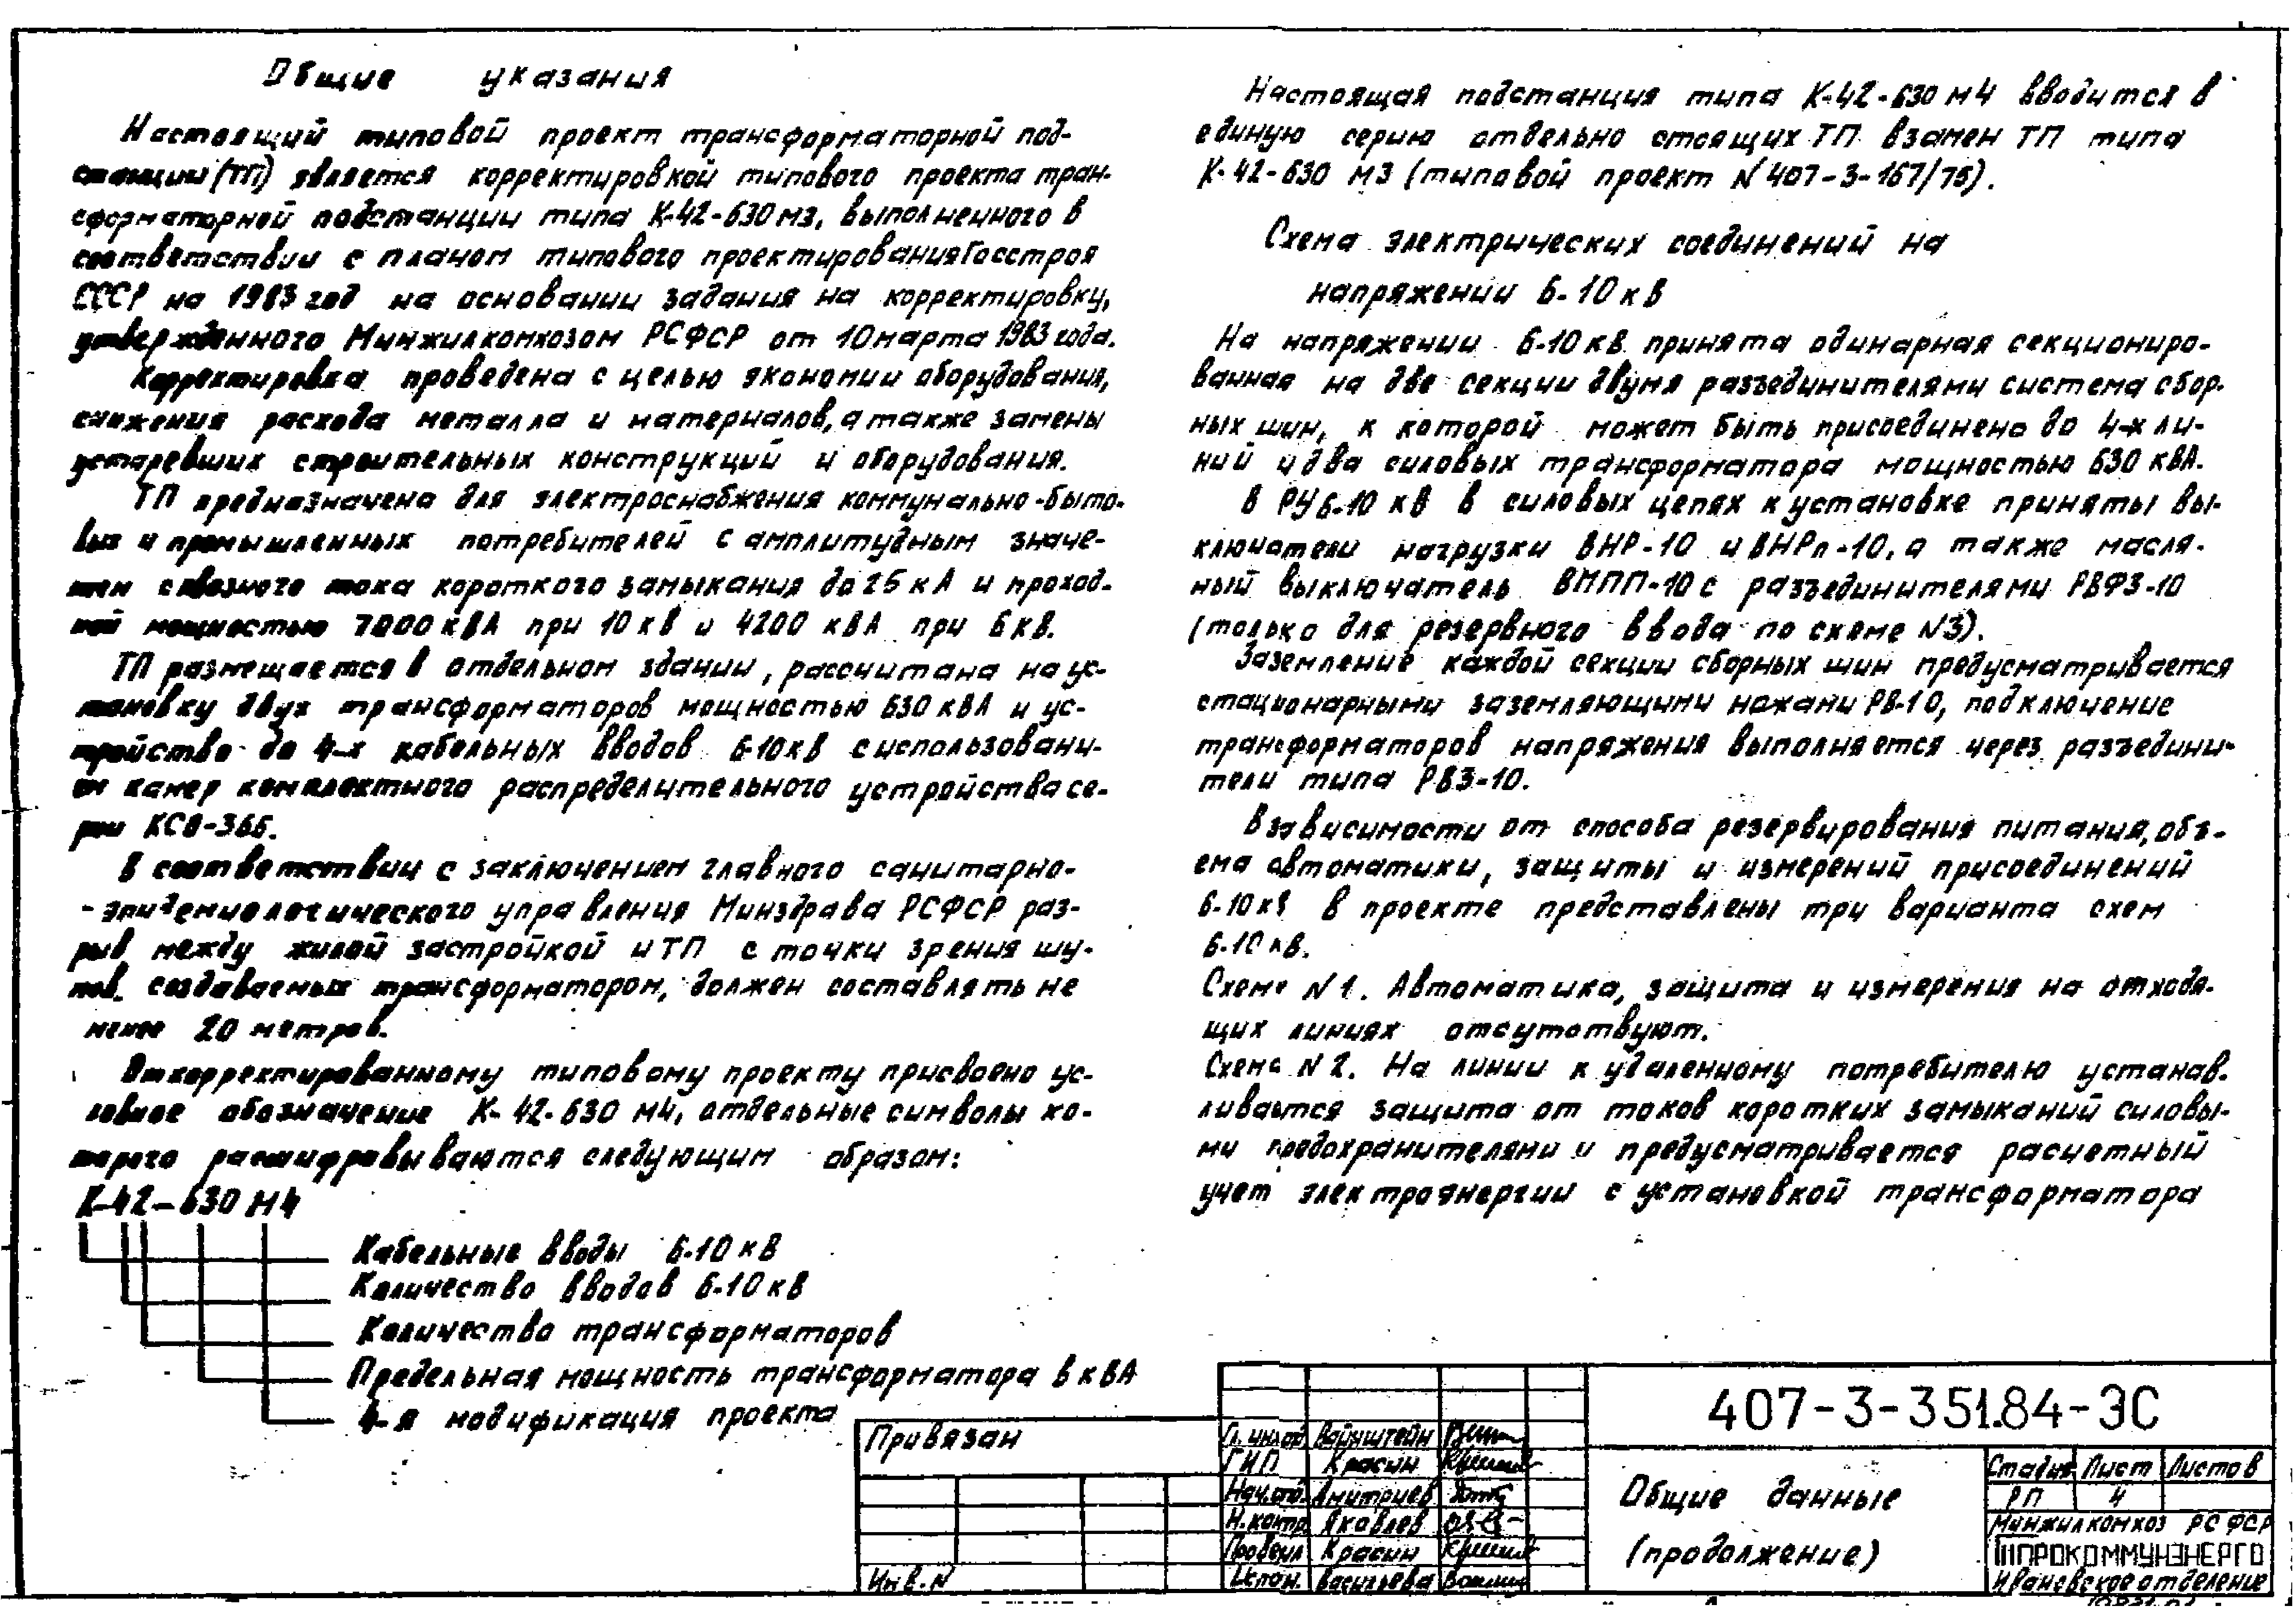 Общие указания
Настоящий типовой проект трансформаторной под-
станции (ТП) является корректировкой типового проекта тран-
сформаторной подстанции типа К-42-630 м3, выполненного в
соответствии с планом типового проектирования Госстроя
СССР на 1983 год на основании задания на корректировку,
утвержденного Минжилкомхозом РСФСР от 10 марта 1983 года.
Корректировка проведена с целью экономии оборудования,
снижения расхода металла и материалов, а также замены
устаревших строительных конструкций и оборудования.
ТП предназначена для электроснабжения коммунально-быто-
вых и промышленных потребителей с амплитудным значе-
нием сквозного тока короткого замыкания до 25 кА и проход-
ной мощностью 7000 кВА при 10 кВ и 4200 кВА при 6 кВ.
ТП размещается в отдельном здании, рассчитана на ус-
тановку двух трансформаторов мощностью 630 кВА и ус-
тройство до 4-х кабельных вводов 6-10 кВ с использовани-
ем камер комплектного распределительного устройства се-
рии КСО-366.
В соответствии с заключением главного санитарно-
-эпидемиологического управления Минздрава РСФСР раз-
рыв между жилой застройкой и ТП с точки зрения шу-
мов, создаваемых трансформатором, должен составлять не
менее 20 метров.
Откорректированному типовому проекту присвоено ус-
ловное обозначение К-42-630 м4, отдельные символы ко-
торого расшифровываются следующим образом:
К-42-630 М4
Кабельные вводы 6-10 кВ
Количество вводов 6-10 кВ
Количество трансформаторов
Предельная мощность трансформатора в кВА
4-я модификация проекта
Настоящая подстанция типа К-42-630 м4 вводится в
единую серию отдельно стоящих ТП взамен ТП типа
К-42-630 м3 (типовой проект N 407-3-167/75).
Схема электрических соединений на
напряжении 6-10 кВ
На напряжении 6-10 кв принята одинарная секциониро-
ванная на две секции двумя разъединителями система сбор-
ных шин, к которой может быть присоединено до 4-х ли-
ний и два силовых трансформатора мощностью 630 кВА.
В РУ 6-10 кВ в силовых цепях к установке приняты вы-
ключатели нагрузки ВНР-10 и ВНРп-10, а также масля-
ный выключатель ВМПП-10 с разъединителями РВФЗ-10
(только для резервного ввода по схеме N3).
Заземление каждой секции сборных шин предусматривается
стационарными заземляющими ножами РВ-10, подключение
трансформаторов напряжения выполняется через разъедини-
тели типа РВЗ-10.
В зависимости от способа резервирования питания, объ-
ема автоматики, защиты и измерений присоединений
6-10 кВ в проекте представлены три варианта схем
6-10 кВ.
Схема N 1. Автоматика, защита и измерения на отходя-
щих линиях отсутствуют.
Схема N 2. На линии к удаленному потребителю устанав-
ливается защита от токов коротких замыканий силовы-
ми предохранителями и предусматривается расчетный
учет электроэнергии с установкой трансформатора
Привязан
Инв. N
Гл. инж. Вайнштейн
ГИП Красин
Нач. отд. Дмитриев
Н. контр. Яковлев
Проверил Красин
Исполн. Васильева
407-3-351.84-ЭС
Общие данные
(продолжение)
Стадия Лист Листов
РП 4
Минжилкомхоз РСФСР
ГИПРОКОММУНЭНЕРГО
Ивановское отделение